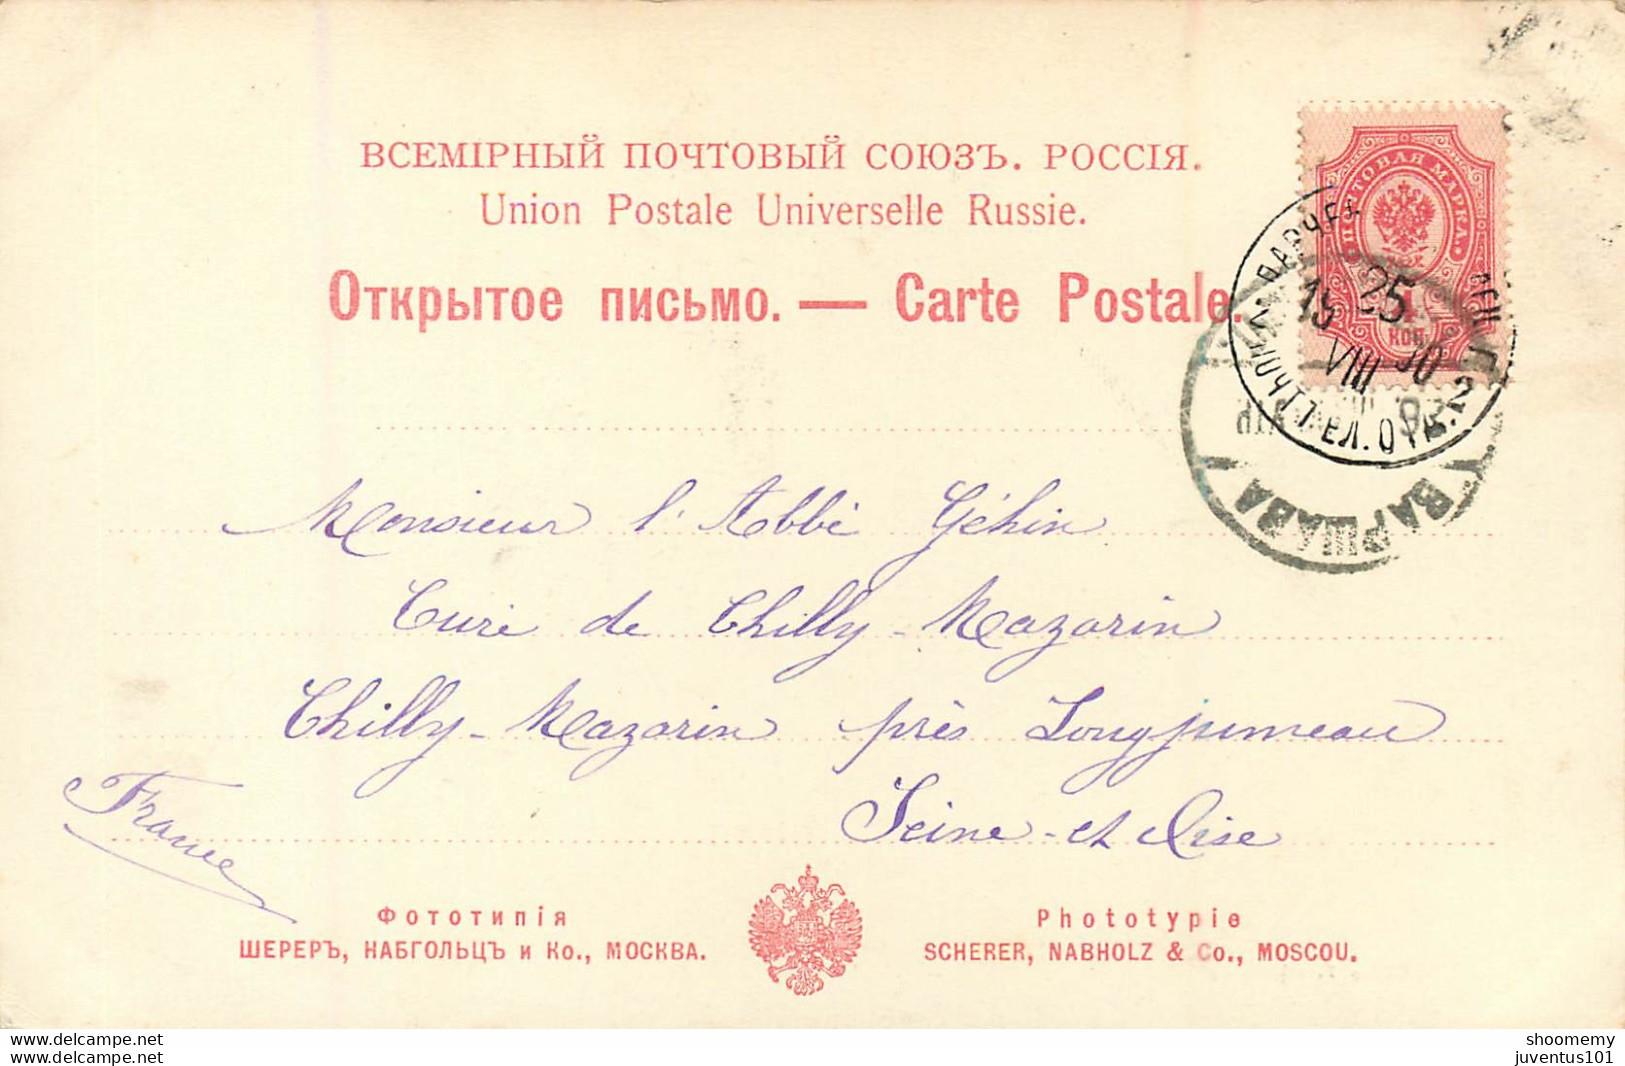 ВСЕМІРНЫЙ ПОЧТОВЫЙ СОЮЗЪ. РОССІЯ.
Union Postale Universelle Russie.
Открытое письмо. — Carte Postale.
ПОЧТОВАЯ МАРКА.
КОП.
25
VIII
ВАРШАВА
Monsieur l'Abbé Géhin
Curé de Chilly-Mazarin
Chilly-Mazarin près Longjumeau
Seine-et Oise
France
Фототипія
ШЕРЕРЪ, НАБГОЛЬЦЪ и Ко., МОСКВА.
Phototypie
SCHERER, NABHOLZ & Co., MOSCOU.
www.delcampe.net
www.delcampe.net
shoomemy
juventus101